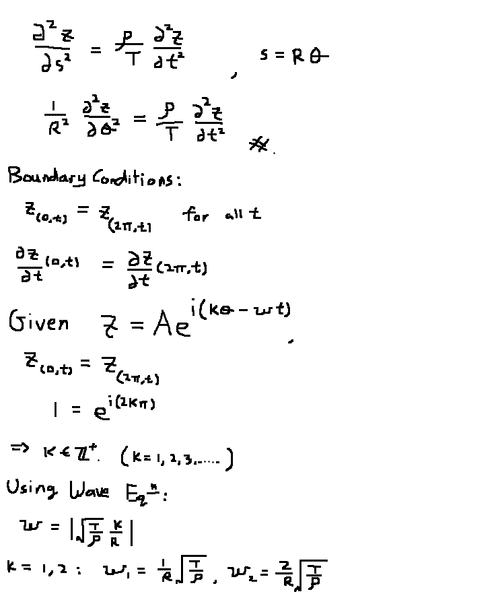 ∂²z/∂s² = ρ/T ∂²z/∂t² , s = Rθ
1/R² ∂²z/∂θ² = ρ/T ∂²z/∂t² #.
Boundary Conditions:
z(0,t) = z(2π,t) for all t
∂z/∂t (0,t) = ∂z/∂t (2π,t)
Given z = Ae^{i(kθ - wt)}.
z(0,t) = z(2π,t)
1 = e^{i(2kπ)}
⇒ k ∈ ℤ⁺. (k = 1, 2, 3, .....)
Using Wave Eqⁿ:
w = |√(T/ρ) k/R|
k = 1, 2 : w₁ = 1/R √(T/ρ), w₂ = 2/R √(T/ρ)